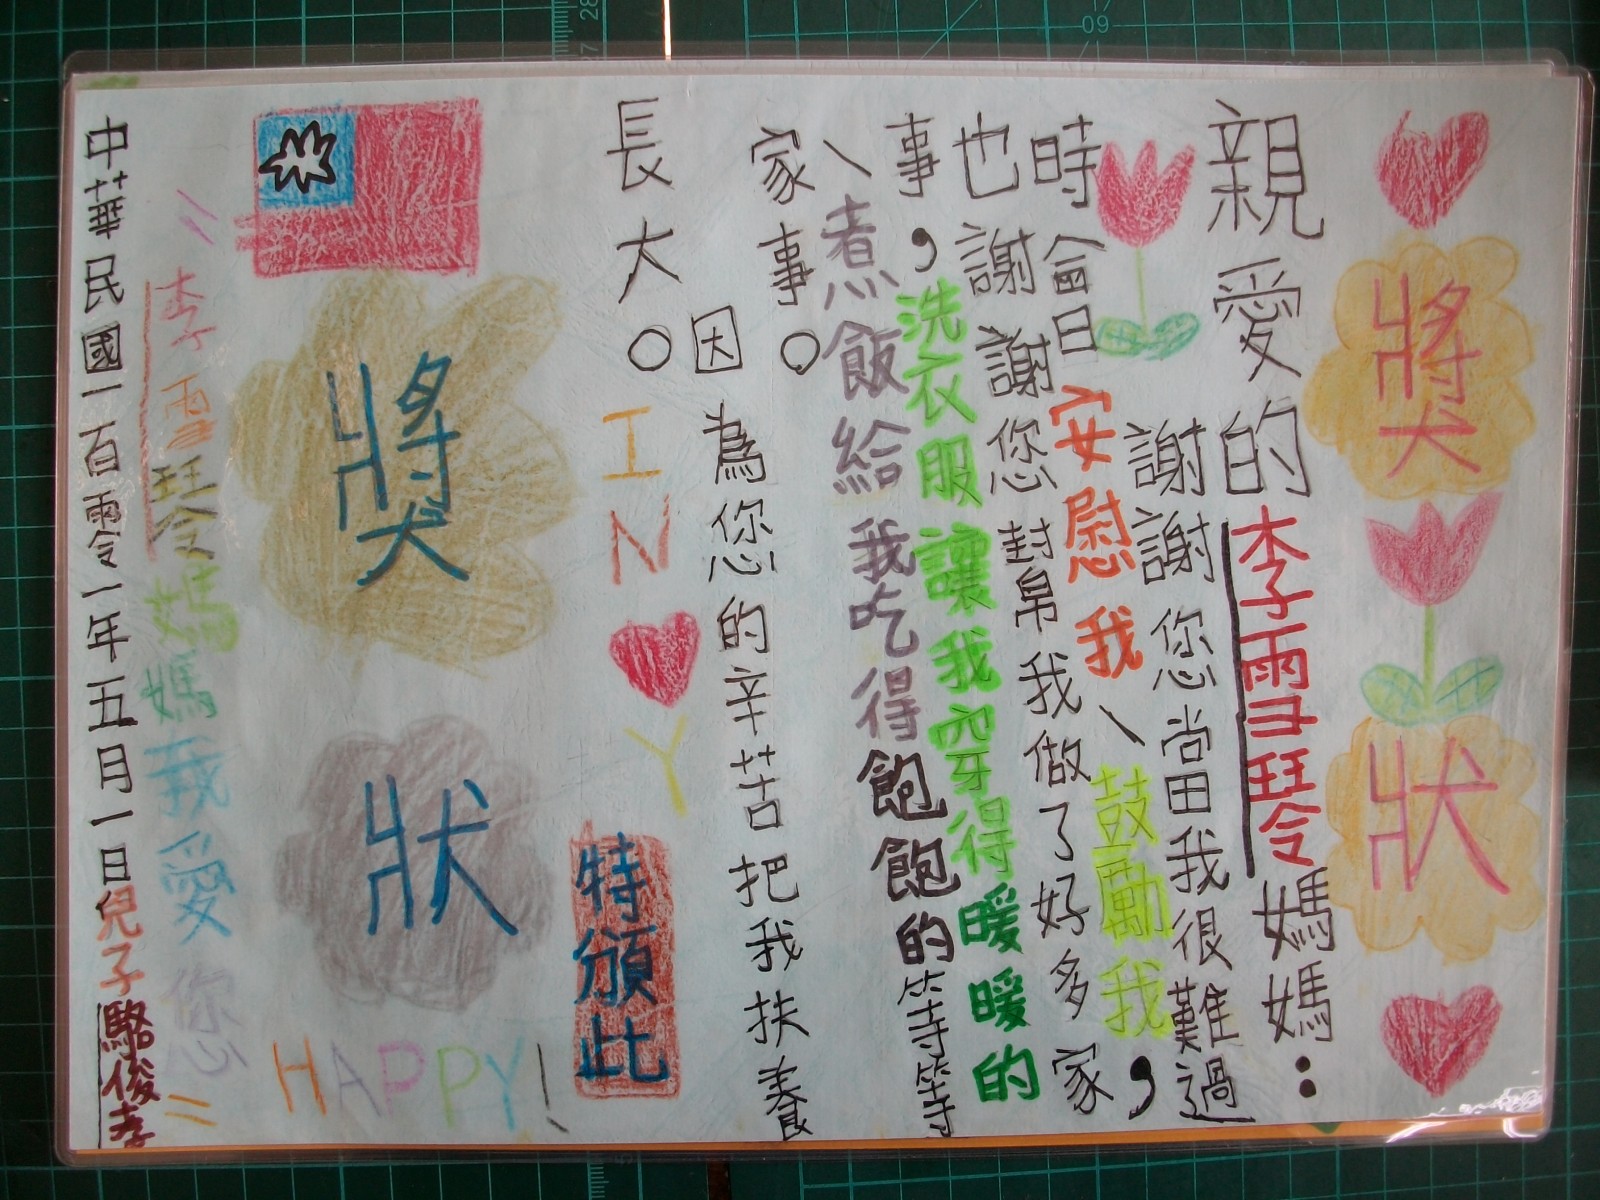 獎狀
親愛的李雪玲媽媽：
謝謝您當我很難過
時會安慰我、鼓勵我，
也謝謝您幫我做了好多家
事，洗衣服讓我穿得暖暖的
、煮飯給我吃得飽飽的等等
家事。
因為您的辛苦把我扶養
長大。
IN Y
特頒此
獎狀
HAPPY!
李雪玲媽媽我愛您
中華民國一百零一年五月一日兒子駱俊孝